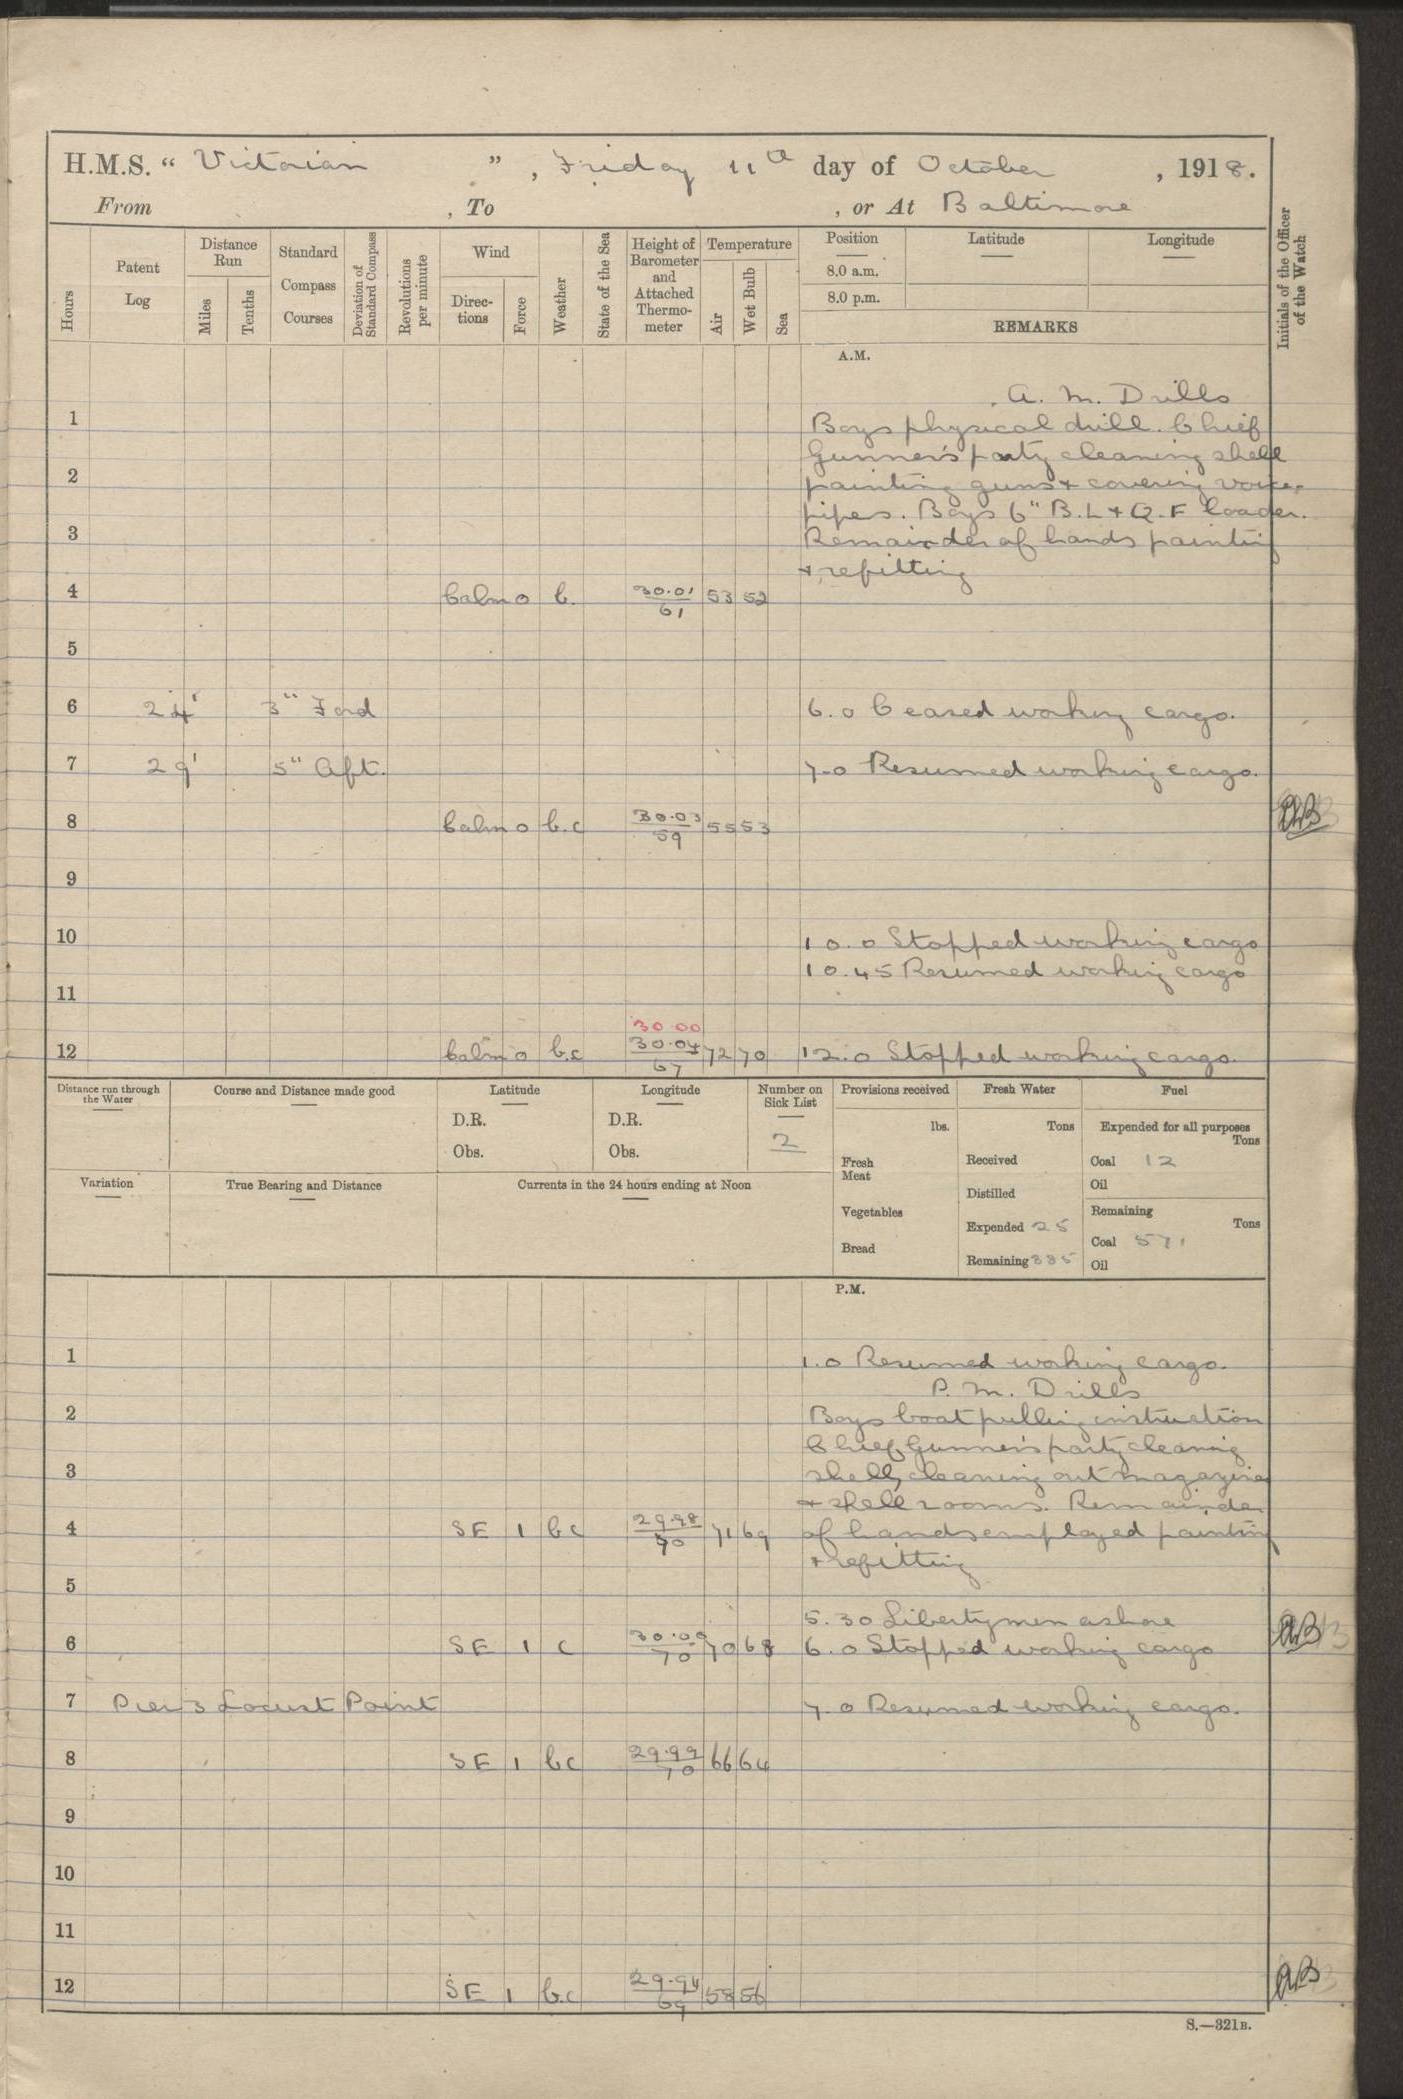 H.M.S. “ Victorian ” , Friday 11th day of October , 1918.
From , To , or At Baltimore
Hours
Patent Log
Distance Run
Miles
Tenths
Standard Compass Courses
Deviation of Standard Compass
Revolutions per minute
Wind
Direc-tions
Force
Weather
State of the Sea
Height of Barometer and Attached Thermo-meter
Temperature
Air
Wet Bulb
Sea
Position
8.0 a.m.
8.0 p.m.
Latitude
Longitude
REMARKS
Initials of the Officer of the Watch
A.M.
A. M. Drills
1 Boys physical drill. Chief
Gunner's party cleaning shell
2 painting guns & covering voice
pipes. Boys 6" B.L & Q.F loader.
3 Remainder of hands painting
& refitting
4 Calm 0 b. 30.01 61 53 52
5
6 24' 3" Ford 6.0 Ceased working cargo.
7 29' 5" Aft. 7.0 Resumed working cargo.
8 Calm 0 b.c 30.03 59 55 53
9
10 10.0 Stopped working cargo
10.45 Resumed working cargo
11
30.00
12 Calm 0 b.c 30.04 67 72 70 12.0 Stopped working cargo.
Distance run through the Water
Course and Distance made good
Latitude
D.R.
Obs.
Longitude
D.R.
Obs.
Number on Sick List
2
Provisions received
lbs.
Fresh Meat
Vegetables
Bread
Fresh Water
Tons
Received
Distilled
Expended 25
Remaining 335
Fuel
Expended for all purposes
Tons
Coal 12
Oil
Remaining
Tons
Coal 571
Oil
Variation
True Bearing and Distance
Currents in the 24 hours ending at Noon
P.M.
1 1.0 Resumed working cargo.
P. M. Drills
2 Boys boat pulling instruction
Chief Gunner's party cleaning
3 shell, cleaning out magazine
& shell rooms. Remainder
4 SE 1 bc 29.98 70 71 69 of hands employed painting
& refitting
5
5.30 Libertymen ashore
6 SE 1 c 30.00 70 70 68 6.0 Stopped working cargo
7 Pier 3 Locust Point 7.0 Resumed working cargo.
8 SE 1 bc 29.99 70 66 64
9
10
11
12 SE 1 b.c 29.94 69 58 56
S.—321B.